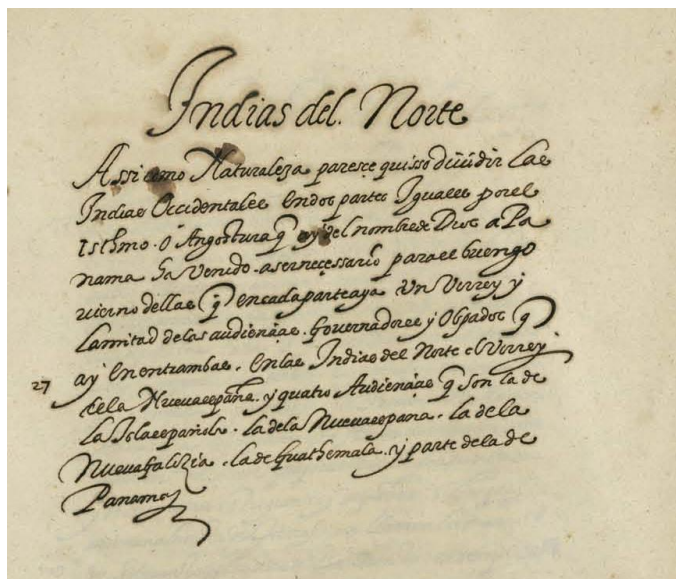 Indias del. Norte
Assi como Naturaleza paresce quisso diuidir las
Indias Occidentales en dos partes Iguales por el
Isthmo. o Angostura q̄ ay del nombre de Dios a Pa
nama ha Venido a ser necessario para el buen go
uierno dellas q̄ en cada parte aya Un Virrey y
la mitad de las audiençias. Gouernadores y Obpados q̄
ay en entrambas. en las Indias del Norte el Virrey
27 es de la Nueua españa. y quatro Audiençias q̄ son la de
la Isla española. la de la Nueua espana. la de la
Nueua Galizia. la de Guathemala. y parte de la de
Panama